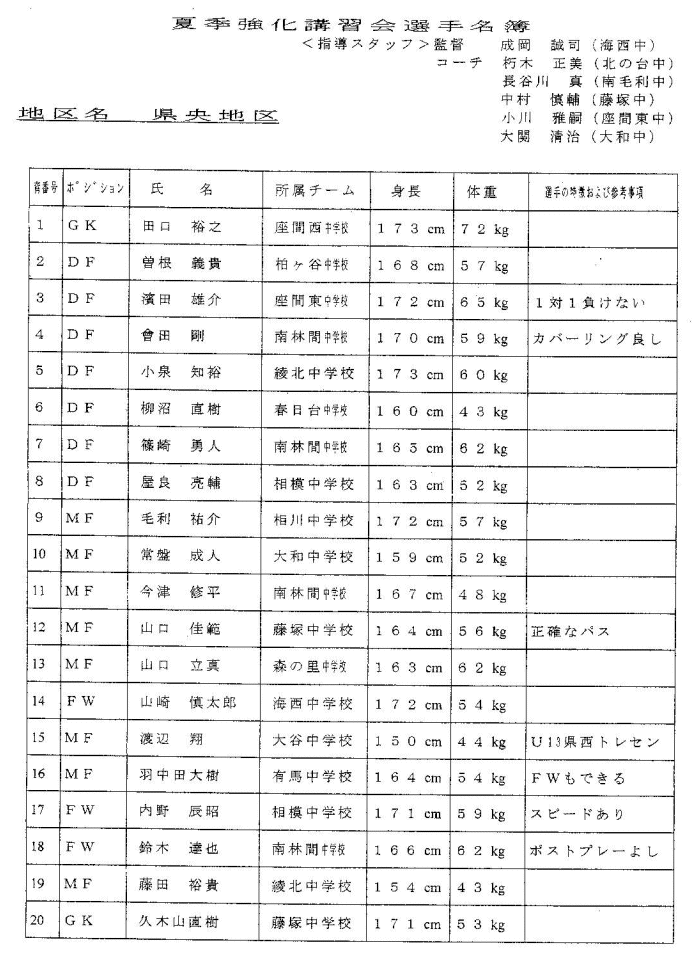 夏季強化講習会選手名簿
<指導スタッフ>監督 成岡 誠司(海西中)
コーチ 朽木 正美(北の台中)
長谷川 真(南毛利中)
中村 慎輔(藤塚中)
地区名 県央地区
小川 雅嗣(座間東中)
大関 清治(大和中)
背番号 ポジション 氏 名 所属チーム 身長 体重 選手の特徴および参考事項
1 GK 田口 裕之 座間西中学校 173cm 72kg
2 DF 曽根 義貴 柏ヶ谷中学校 168cm 57kg
3 DF 濱田 雄介 座間東中学校 172cm 65kg 1対1負けない
4 DF 會田 剛 南林間中学校 170cm 59kg カバーリング良し
5 DF 小泉 知裕 綾北中学校 173cm 60kg
6 DF 柳沼 直樹 春日台中学校 160cm 43kg
7 DF 篠崎 勇人 南林間中学校 165cm 62kg
8 DF 屋良 亮輔 相模中学校 163cm 52kg
9 MF 毛利 祐介 相川中学校 172cm 57kg
10 MF 常盤 成人 大和中学校 159cm 52kg
11 MF 今津 修平 南林間中学校 167cm 48kg
12 MF 山口 佳範 藤塚中学校 164cm 56kg 正確なパス
13 MF 山口 立真 森の里中学校 163cm 62kg
14 FW 山崎 慎太郎 海西中学校 172cm 54kg
15 MF 渡辺 翔 大谷中学校 150cm 44kg U13県西トレセン
16 MF 羽中田大樹 有馬中学校 164cm 54kg FWもできる
17 FW 内野 辰昭 相模中学校 171cm 59kg スピードあり
18 FW 鈴木 達也 南林間中学校 166cm 62kg ポストプレーよし
19 MF 藤田 裕貴 綾北中学校 154cm 43kg
20 GK 久木山直樹 藤塚中学校 171cm 53kg